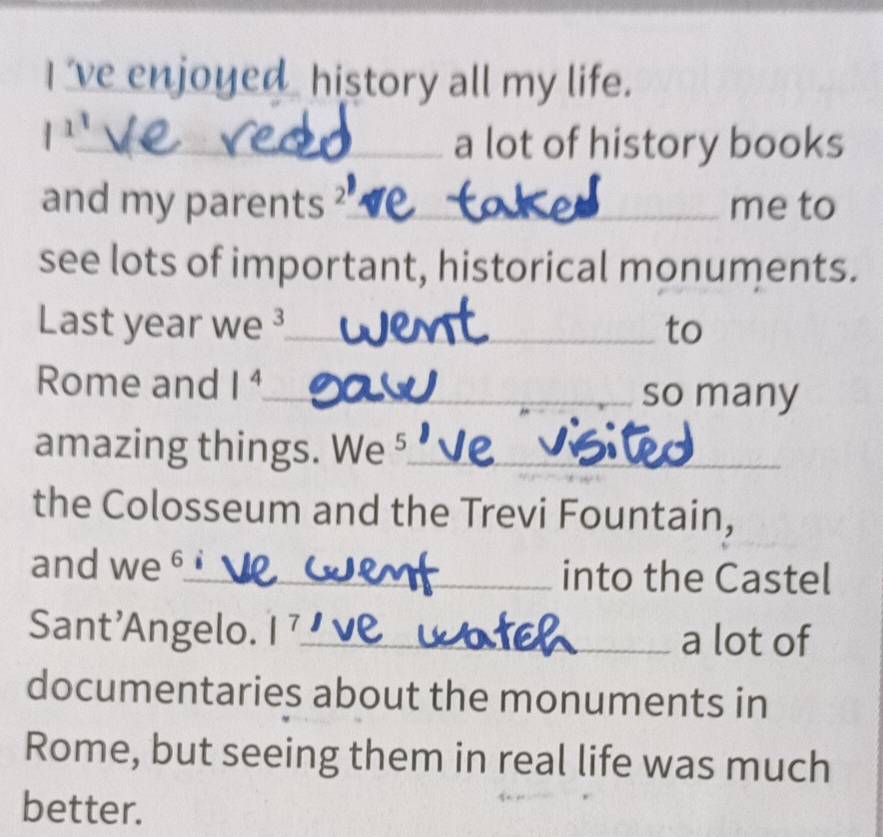 I 've enjoyed history all my life.
I ¹'ve read a lot of history books
and my parents ²'ve taked me to
see lots of important, historical monuments.
Last year we ³ went to
Rome and I ⁴ saw so many
amazing things. We ⁵'ve visited
the Colosseum and the Trevi Fountain,
and we ⁶'ve went into the Castel
Sant'Angelo. I ⁷'ve watch a lot of
documentaries about the monuments in
Rome, but seeing them in real life was much
better.